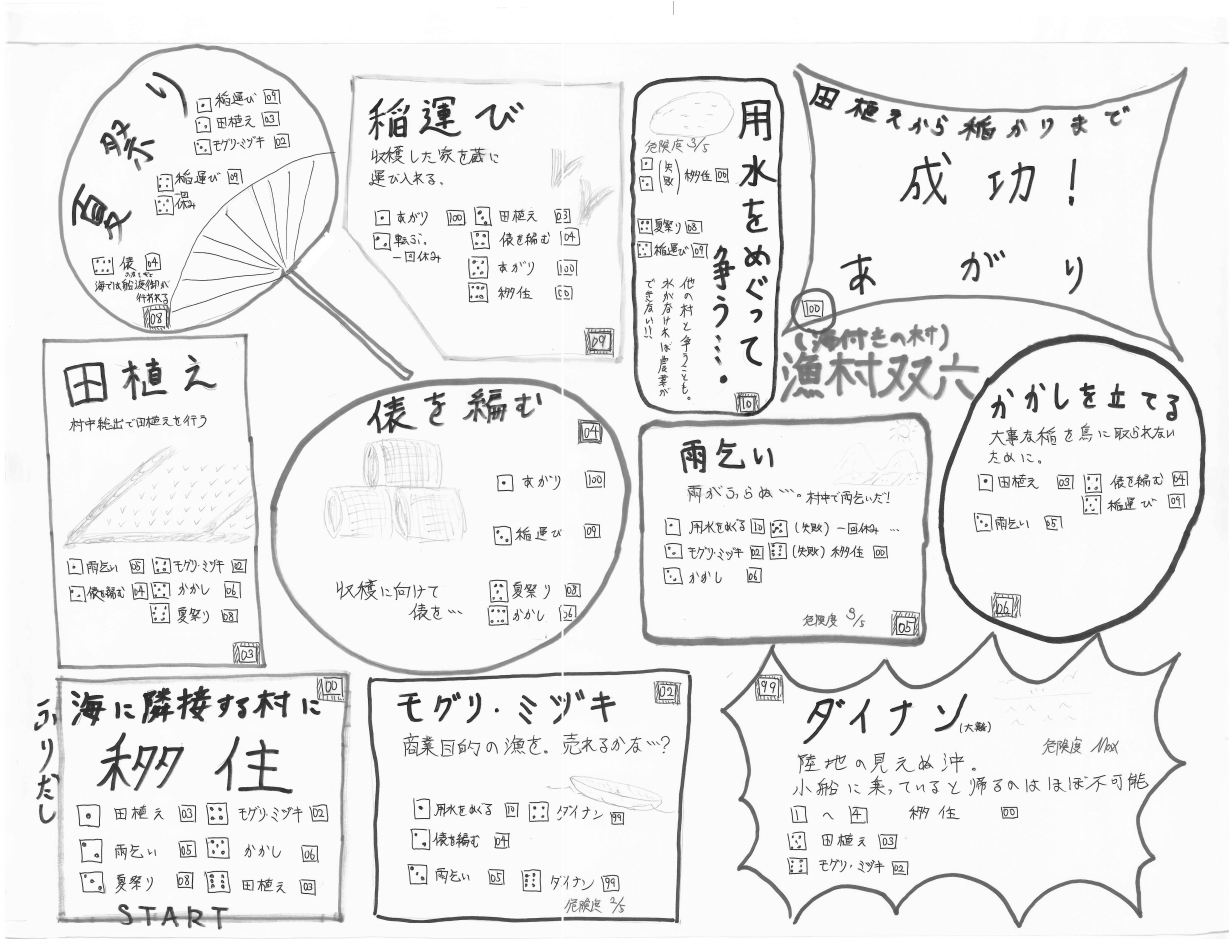 夏祭り
稲運び 09
田植え 03
モグリ・ミヅキ 02
稲運び 09
一回休み
俵 04
海では船渡御が
行われる
08
稲運び
収穫した家を蔵に
運び入れる。
あがり 100
転ぶ。
一回休み
田植え 03
俵を編む 04
あがり 100
移住 00
09
用水をめぐって
争う…。
危険度 3/5
(失敗) 移住 00
夏祭り 08
稲運び 09
他の村と争うことも。
水がなければ農業が
できない!!
10
田植えから稲かりまで
成功!
あがり
100
(海付きの村)
漁村双六
田植え
村中総出で田植えを行う
雨乞い 05
俵を編む 04
モグリ・ミヅキ 02
かかし 06
夏祭り 08
03
俵を編む
04
あがり 100
稲運び 09
夏祭り 08
かかし 06
収穫に向けて
俵を…
雨乞い
雨がふらぬ…。村中で雨乞いだ!
用水をめぐる 10
モグリ・ミヅキ 02
かかし 06
(失敗) 一回休み …
(失敗) 移住 00
危険度 3/5
05
かかしを立てる
大事な稲を鳥に取られない
ために。
田植え 03
雨乞い 05
俵を編む 04
稲運び 09
06
ふりだし
00
海に隣接する村に
移住
田植え 03
雨乞い 05
夏祭り 08
モグリ・ミヅキ 02
かかし 06
田植え 03
START
02
モグリ・ミヅキ
商業目的の漁を。売れるかな…?
用水をめぐる 10
俵を編む 04
雨乞い 05
ダイナン 99
ダイナン 99
危険度 2/5
99
ダイナン(大難)
危険度 Max
陸地の見えぬ沖。
小船に乗っていると帰るのはほぼ不可能
1 へ 4 移住 00
田植え 03
モグリ・ミヅキ 02